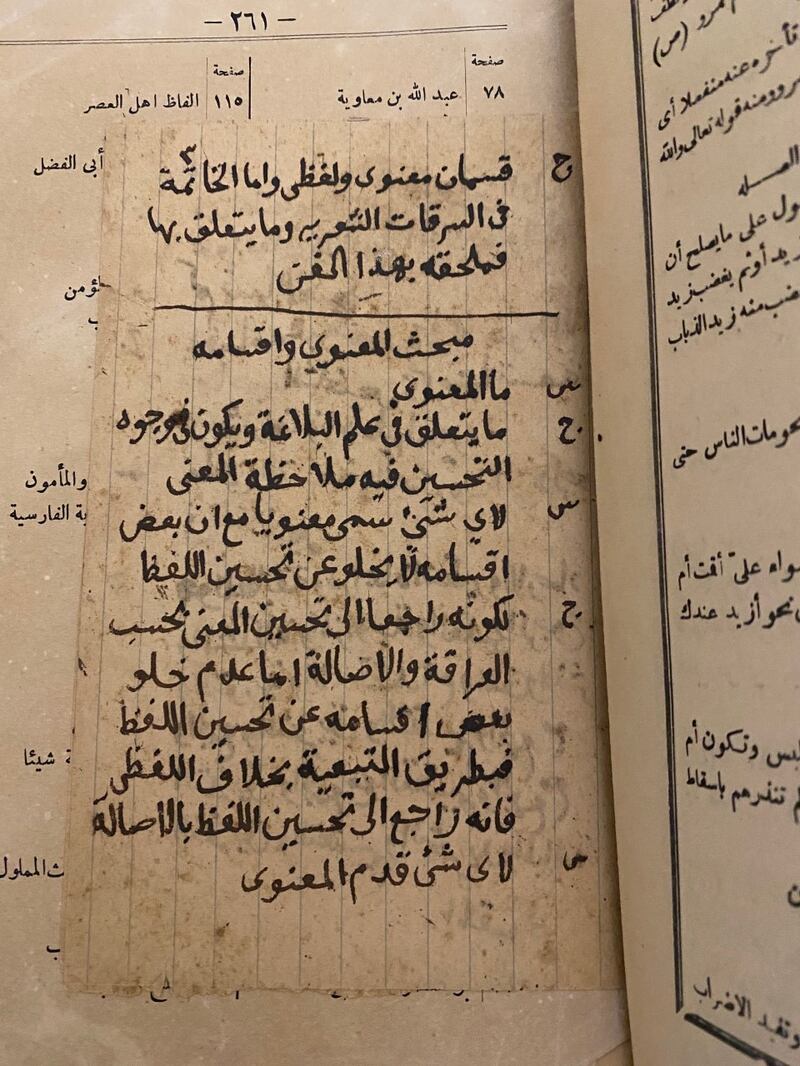 — ٢٦١ —
صفحة
صفحة
٧٨ عبد الله بن معاوية
١١٥ الفاظ اهل العصر
أبى الفضل
والمأمون
ة الفارسية
شيئا
ج قسمان معنوى ولفظى واما الخاتمة
٣
فى السرقات الشعريه وما يتعلق بها
فملحقه بهذا الفن
مبحث المعنوي واقسامه
س ما المعنوى
ج ما يتعلق فى علم البلاغة ويكون فى وجوه
التحسين فيه ملاحظة المعنى
س لاي شئ سمى معنويا مع ان بعض
اقسامه لا يخلو عن تحسين اللفظ
ج لكونه راجعا الى تحسين المعنى بحسب
العراقة والاصالة اما عدم خلو
بعض اقسامه عن تحسين اللفظ
فبطريق التبعية بخلاف اللفظى
فانه راجع الى تحسين اللفظ بالاصالة
س لاى شئ قدم المعنوى
(ص)
تأخره عنه منفعلا أى
ومنه قوله تعالى والله
على ما يصلح أن
أوثم يغضب زيد
منه زيد الذباب
الناس حتى
سواء علىّ أقت أم
نحو أزيد عندك
وتكون أم
تنذرهم باسقاط
وتفيد الاضراب